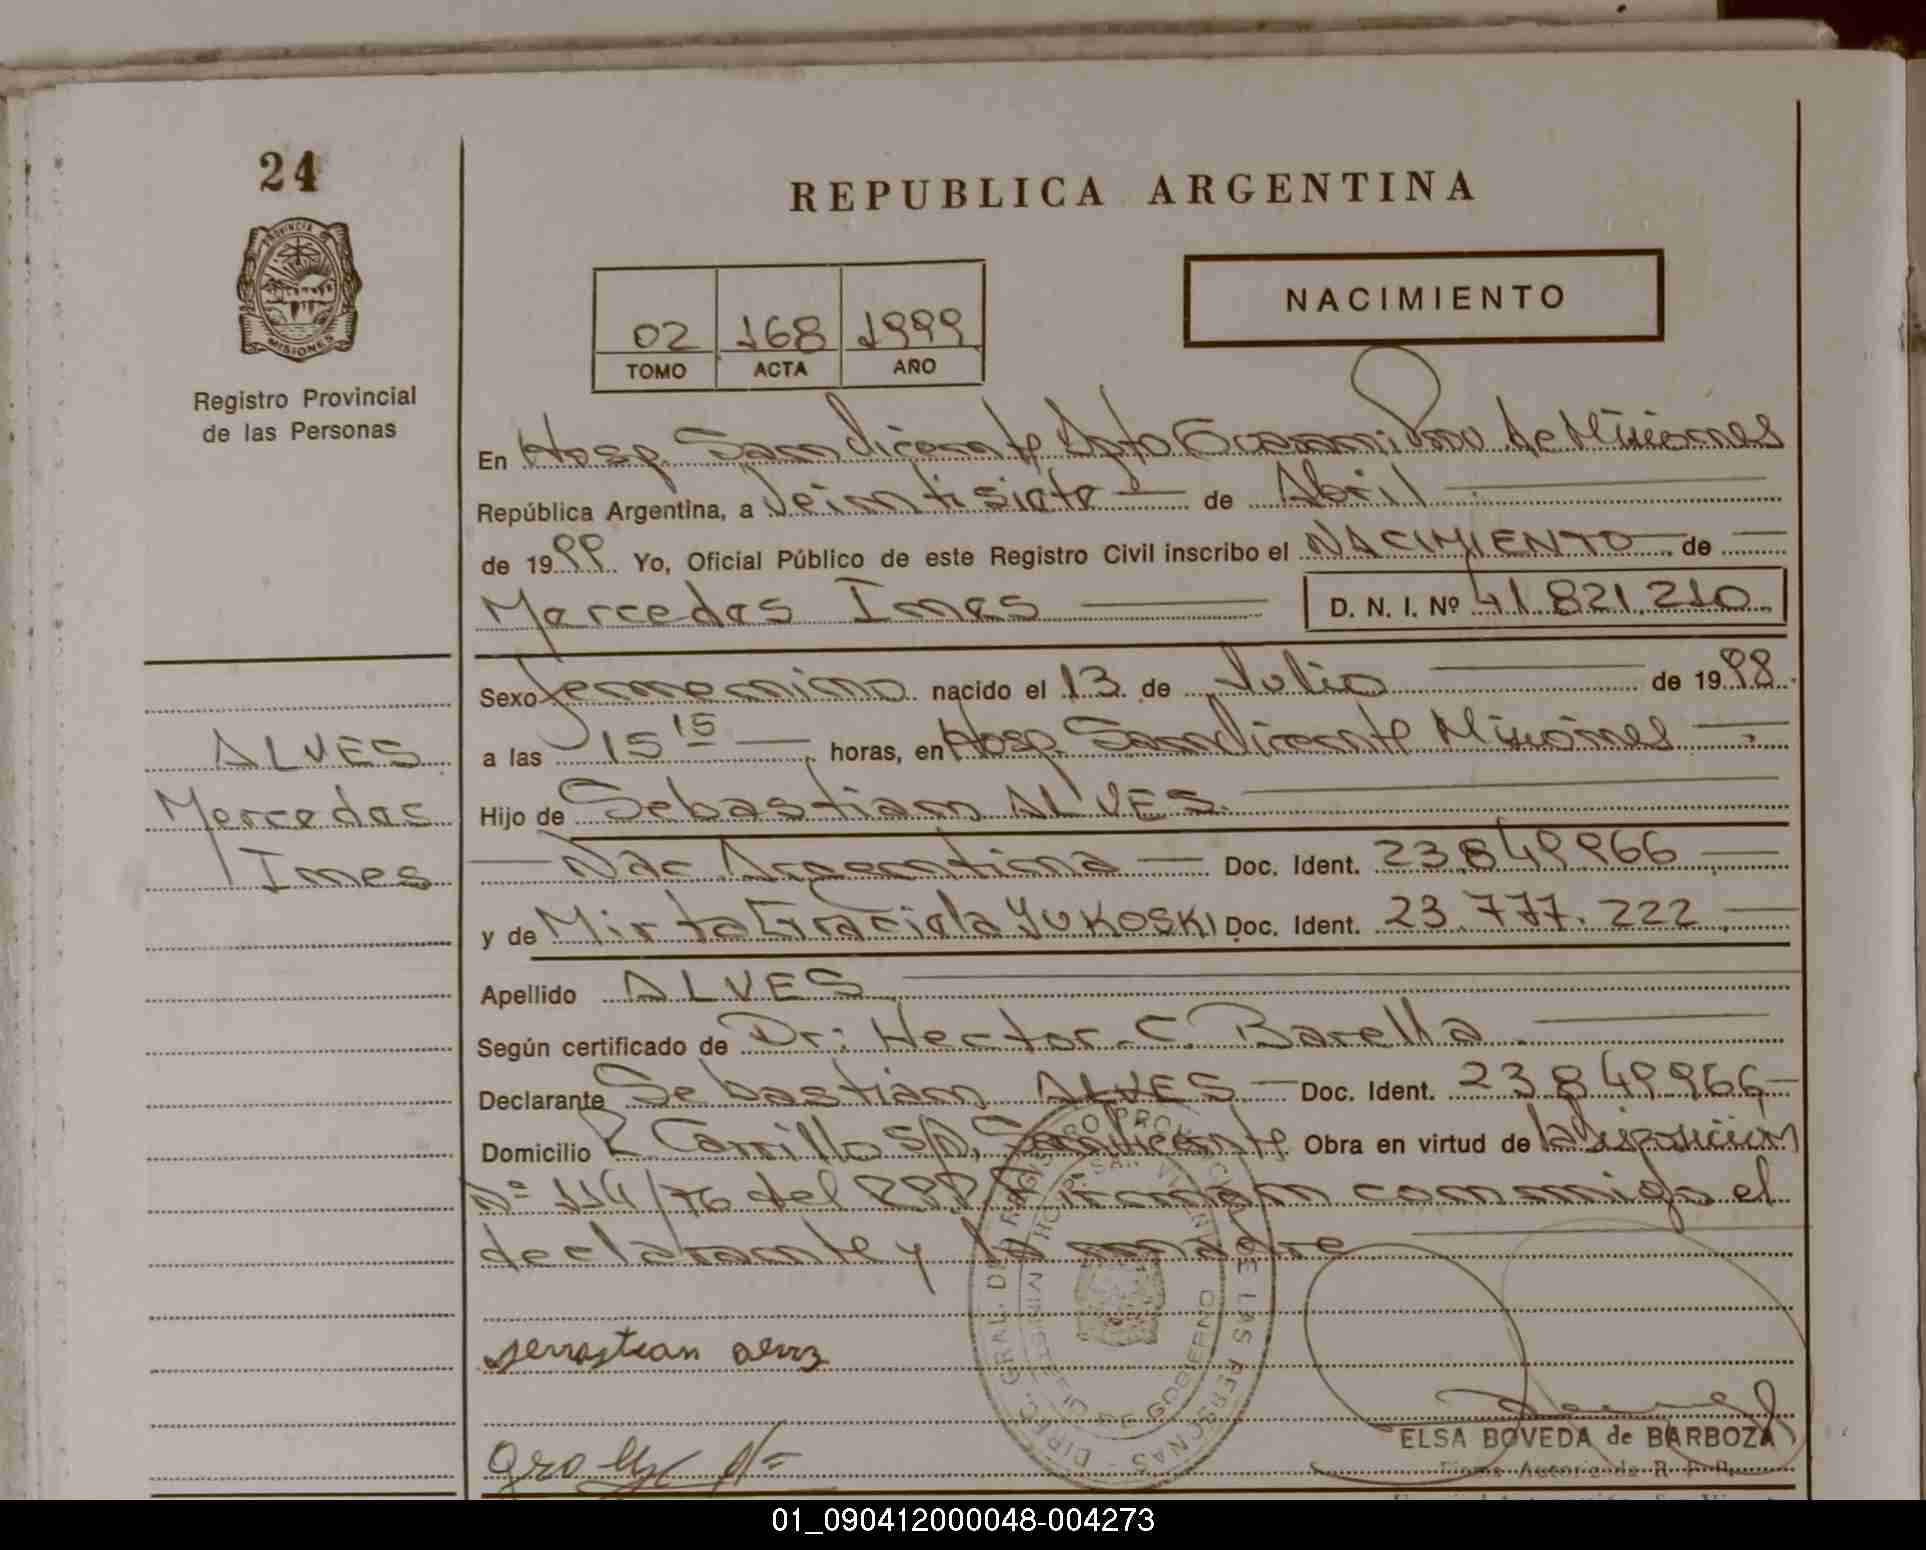 24
REPUBLICA ARGENTINA
PROVINCIA DE
MISIONES
Registro Provincial
de las Personas
02 168 1999
TOMO ACTA AÑO
NACIMIENTO
En Hosp. San Vicente Dpto Guarani Prov de Misiones
República Argentina, a Veintisiete de Abril
de 1999 Yo, Oficial Público de este Registro Civil inscribo el NACIMIENTO de
Mercedes Ines D. N. I. Nº 41.821.210
Sexo femenino nacido el 13 de Julio de 1998
a las 15 15 horas, en Hosp. San Vicente Misiones
Hijo de Sebastian ALVES
Nac Argentina Doc. Ident. 23.849.966
y de Mirta Graciela YUKOSKI Doc. Ident. 23.777.222
Apellido ALVES
Según certificado de Dr: Hector C. Barella
Declarante Sebastian ALVES Doc. Ident. 23.849.966
Domicilio R Carrillo S/N, San Vicente Obra en virtud de la Disposicion
Nº 114/76 del RPP Firman conmigo el
declarante y la madre
ALVES
Mercedes
Ines
DIREC. GRAL. DEL REGISTRO PROVINCIAL DE LAS PERSONAS
HOSP. SAN VICENTE
MINISTERIO DE GOBIERNO
ELSA BOVEDA de BARBOZA
Firma Autorizada R. P. P.
01_090412000048-004273